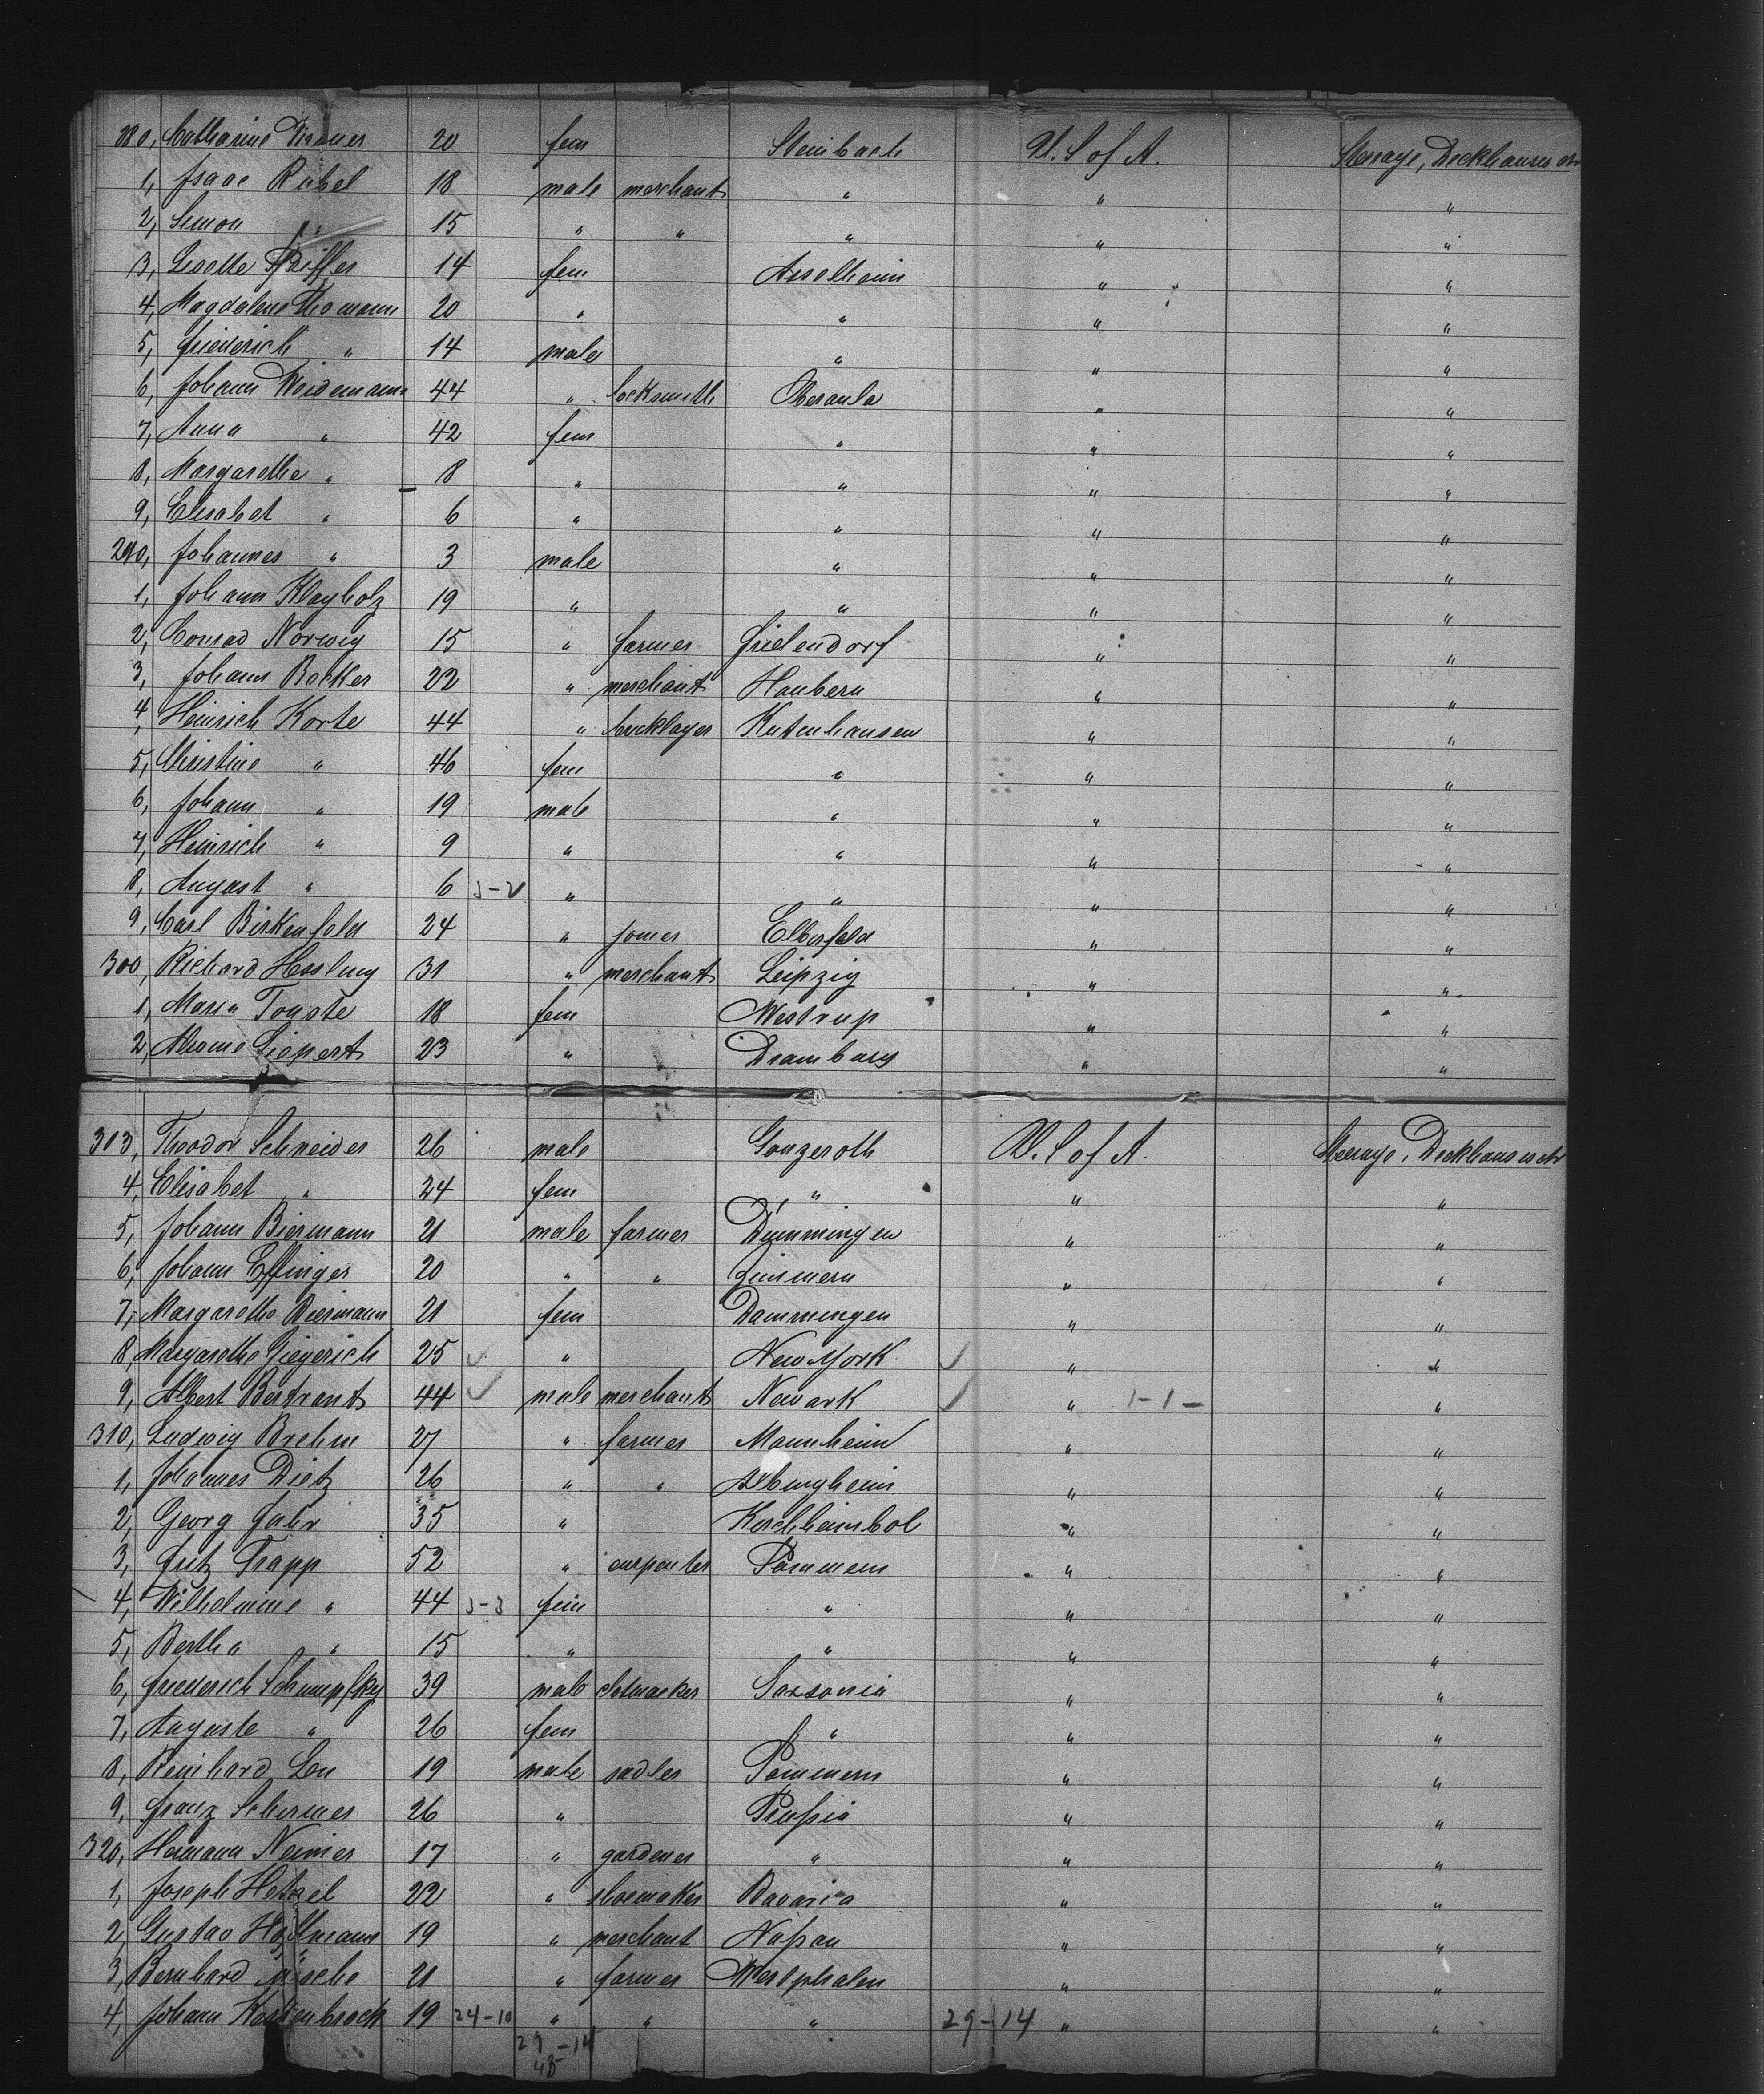 280, Catharine 20 fem Steinbach U. S of A. Steerage, Deckhouse
1, Isaac Rubel 18 male merchant " " "
2, Simon " 15 " " " " "
3, Lisette 14 fem Asselheim " "
4, Magdalena Thomann 20 " " " "
5, Friederich " 14 male " " "
6, Johann Weidemann 44 " locksmith Oberaula " "
7, Anna " 42 fem " " "
8, Margarethe " 8 " " " "
9, Elisabet " 6 " " " "
290, Johannes " 3 male " " "
1, Johann Klayholz 19 " " " "
2, Conrad Norwig 15 " farmer Frielendorf " "
3, Johann Becker 22 " merchant Haubern " "
4, Heinrich Korte 44 " bricklayer Kutenhausen " "
5, Christine " 46 fem " " "
6, Johann " 19 male " " "
7, Heinrich " 9 " " " "
8, August " 6 3-2 " " " "
9, Carl Birkenfeld 24 " joiner Elberfeld " "
300, Richard Hessling 31 " merchant Leipzig " "
1, Maria Tonste 18 fem Westrup " "
2, Liepert 23 " Dramburg " "
303, Theodor Schneider 26 male Gonzeroth U. S of A. Steerage, Deckhouse
4, Elisabet " 24 fem " " "
5, Johann Biermann 21 male farmer Dunningen " "
6, Johann Effinger 20 " " Zimmern " "
7, Margarethe Biermann 21 fem Dunningen " "
8, Margarethe Giegerich 25 " New York " "
9, Albert Bertrant 44 male merchant Newark " 1-1- "
310, Ludwig Brehm 27 " farmer Mannheim " "
1, Johannes Dietz 26 " " " "
2, Georg Fahr 35 " Kirchheimbol " "
3, Fritz Trapp 52 " carpenter Pommern " "
4, Wilhelmine " 44 3-3 fem " " "
5, Bertha " 15 " " " "
6, Friederich Schumpfky 39 male Saxonia " "
7, Auguste " 26 fem " " "
8, Reinhard Leu 19 male sadler Pommern " "
9, Franz Schirmer 26 " Prussia " "
320, Hermann Neimer 17 " gardener " " "
1, Joseph Hetzel 22 " shoemaker Bavaria " "
2, Gustav Hoffmann 19 " merchant Nassau " "
3, Bernhard 21 " farmer Westphalen " "
4, Johann Kortenbrock 19 24-10 " " " 29-14 " "
29-14
48